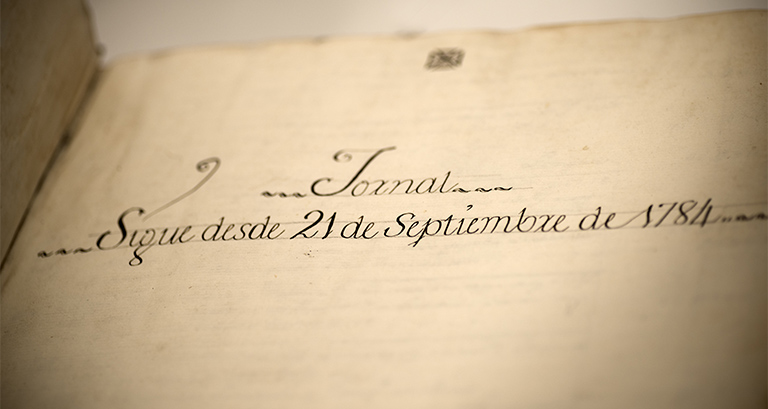 Jornal
Sigue desde 21 de Septiembre de 1784